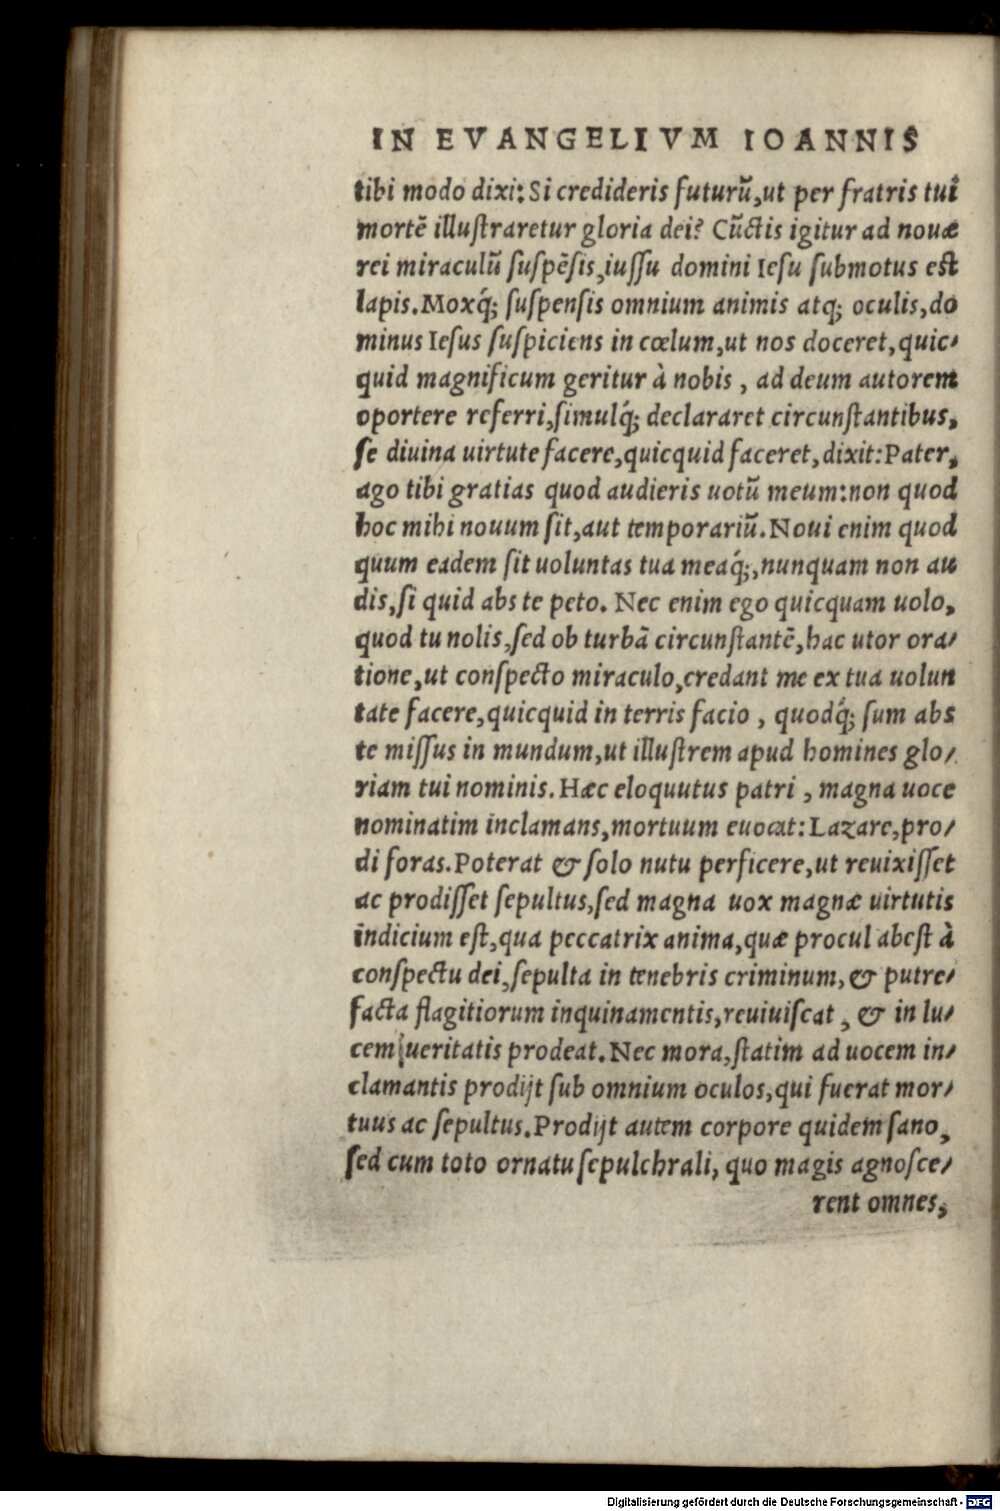 IN EVANGELIVM IOANNIS
tibi modo dixi: Si credideris futurū, ut per fratris tui
mortē illuſtraretur gloria dei? Cūctis igitur ad nouæ
rei miraculū ſuſpēſis, iuſſu domini Ieſu ſubmotus eſt
lapis. Moxq́; ſuſpenſis omnium animis atq; oculis, do
minus Ieſus ſuſpiciens in cœlum, ut nos doceret, quic-
quid magnificum geritur à nobis, ad deum autorem
oportere referri, ſimulq́; declararet circunſtantibus,
ſe diuina uirtute facere, quicquid faceret, dixit: Pater,
ago tibi gratias quod audieris uotū meum: non quod
hoc mihi nouum ſit, aut temporariū. Noui enim quod
quum eadem ſit uoluntas tua meaq́;, nunquam non au
dis, ſi quid abs te peto. Nec enim ego quicquam uolo,
quod tu nolis, ſed ob turbā circunſtantē, hac utor ora-
tione, ut conſpecto miraculo, credant me ex tua uolun
tate facere, quicquid in terris facio, quodq́; ſum abs
te miſſus in mundum, ut illuſtrem apud homines glo-
riam tui nominis. Hæc eloquutus patri, magna uoce
nominatim inclamans, mortuum euocat: Lazare, pro-
di foras. Poterat & ſolo nutu perficere, ut reuixiſſet
ac prodiſſet ſepultus, ſed magna uox magnæ uirtutis
indicium eſt, qua peccatrix anima, quæ procul abeſt à
conſpectu dei, ſepulta in tenebris criminum, & putre-
facta flagitiorum inquinamentis, reuiuiſcat, & in lu-
cem ueritatis prodeat. Nec mora, ſtatim ad uocem in-
clamantis prodijt ſub omnium oculos, qui fuerat mor-
tuus ac ſepultus. Prodijt autem corpore quidem ſano,
ſed cum toto ornatu ſepulchrali, quo magis agnoſce-
rent omnes,
Digitalisierung gefördert durch die Deutsche Forschungsgemeinschaft - DFG